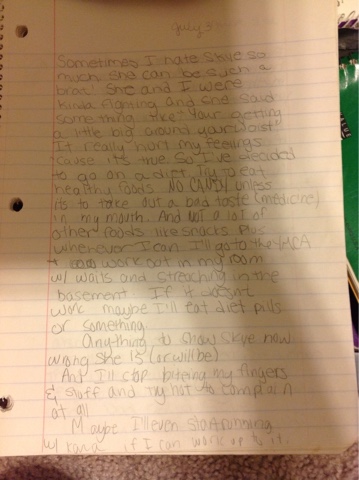 July 5
Sometimes I hate Skye so
much. She can be such a
brat! She and I were
kinda fighting and she said
something like "Your getting
a little big around your waist"
It really hurt my feelings
'cause it's true. So I've decided
to go on a diet. Try to eat
healthy foods NO CANDY unless
its to take out a bad taste (medicine)
in my mouth. And NOT a lot of
other foods like snacks. Plus
whenever I can I'll go to the YMCA
+ work out in my room
w/ waits and streaching in the
basement. If it doesn't
work maybe I'll eat diet pills
or something.
Anything to show Skye how
wrong she is (or will be)
And I'll stop biteing my fingers
& stuff and try not to complain
at all
Maybe I'll even start running
w/ if I can work up to it.